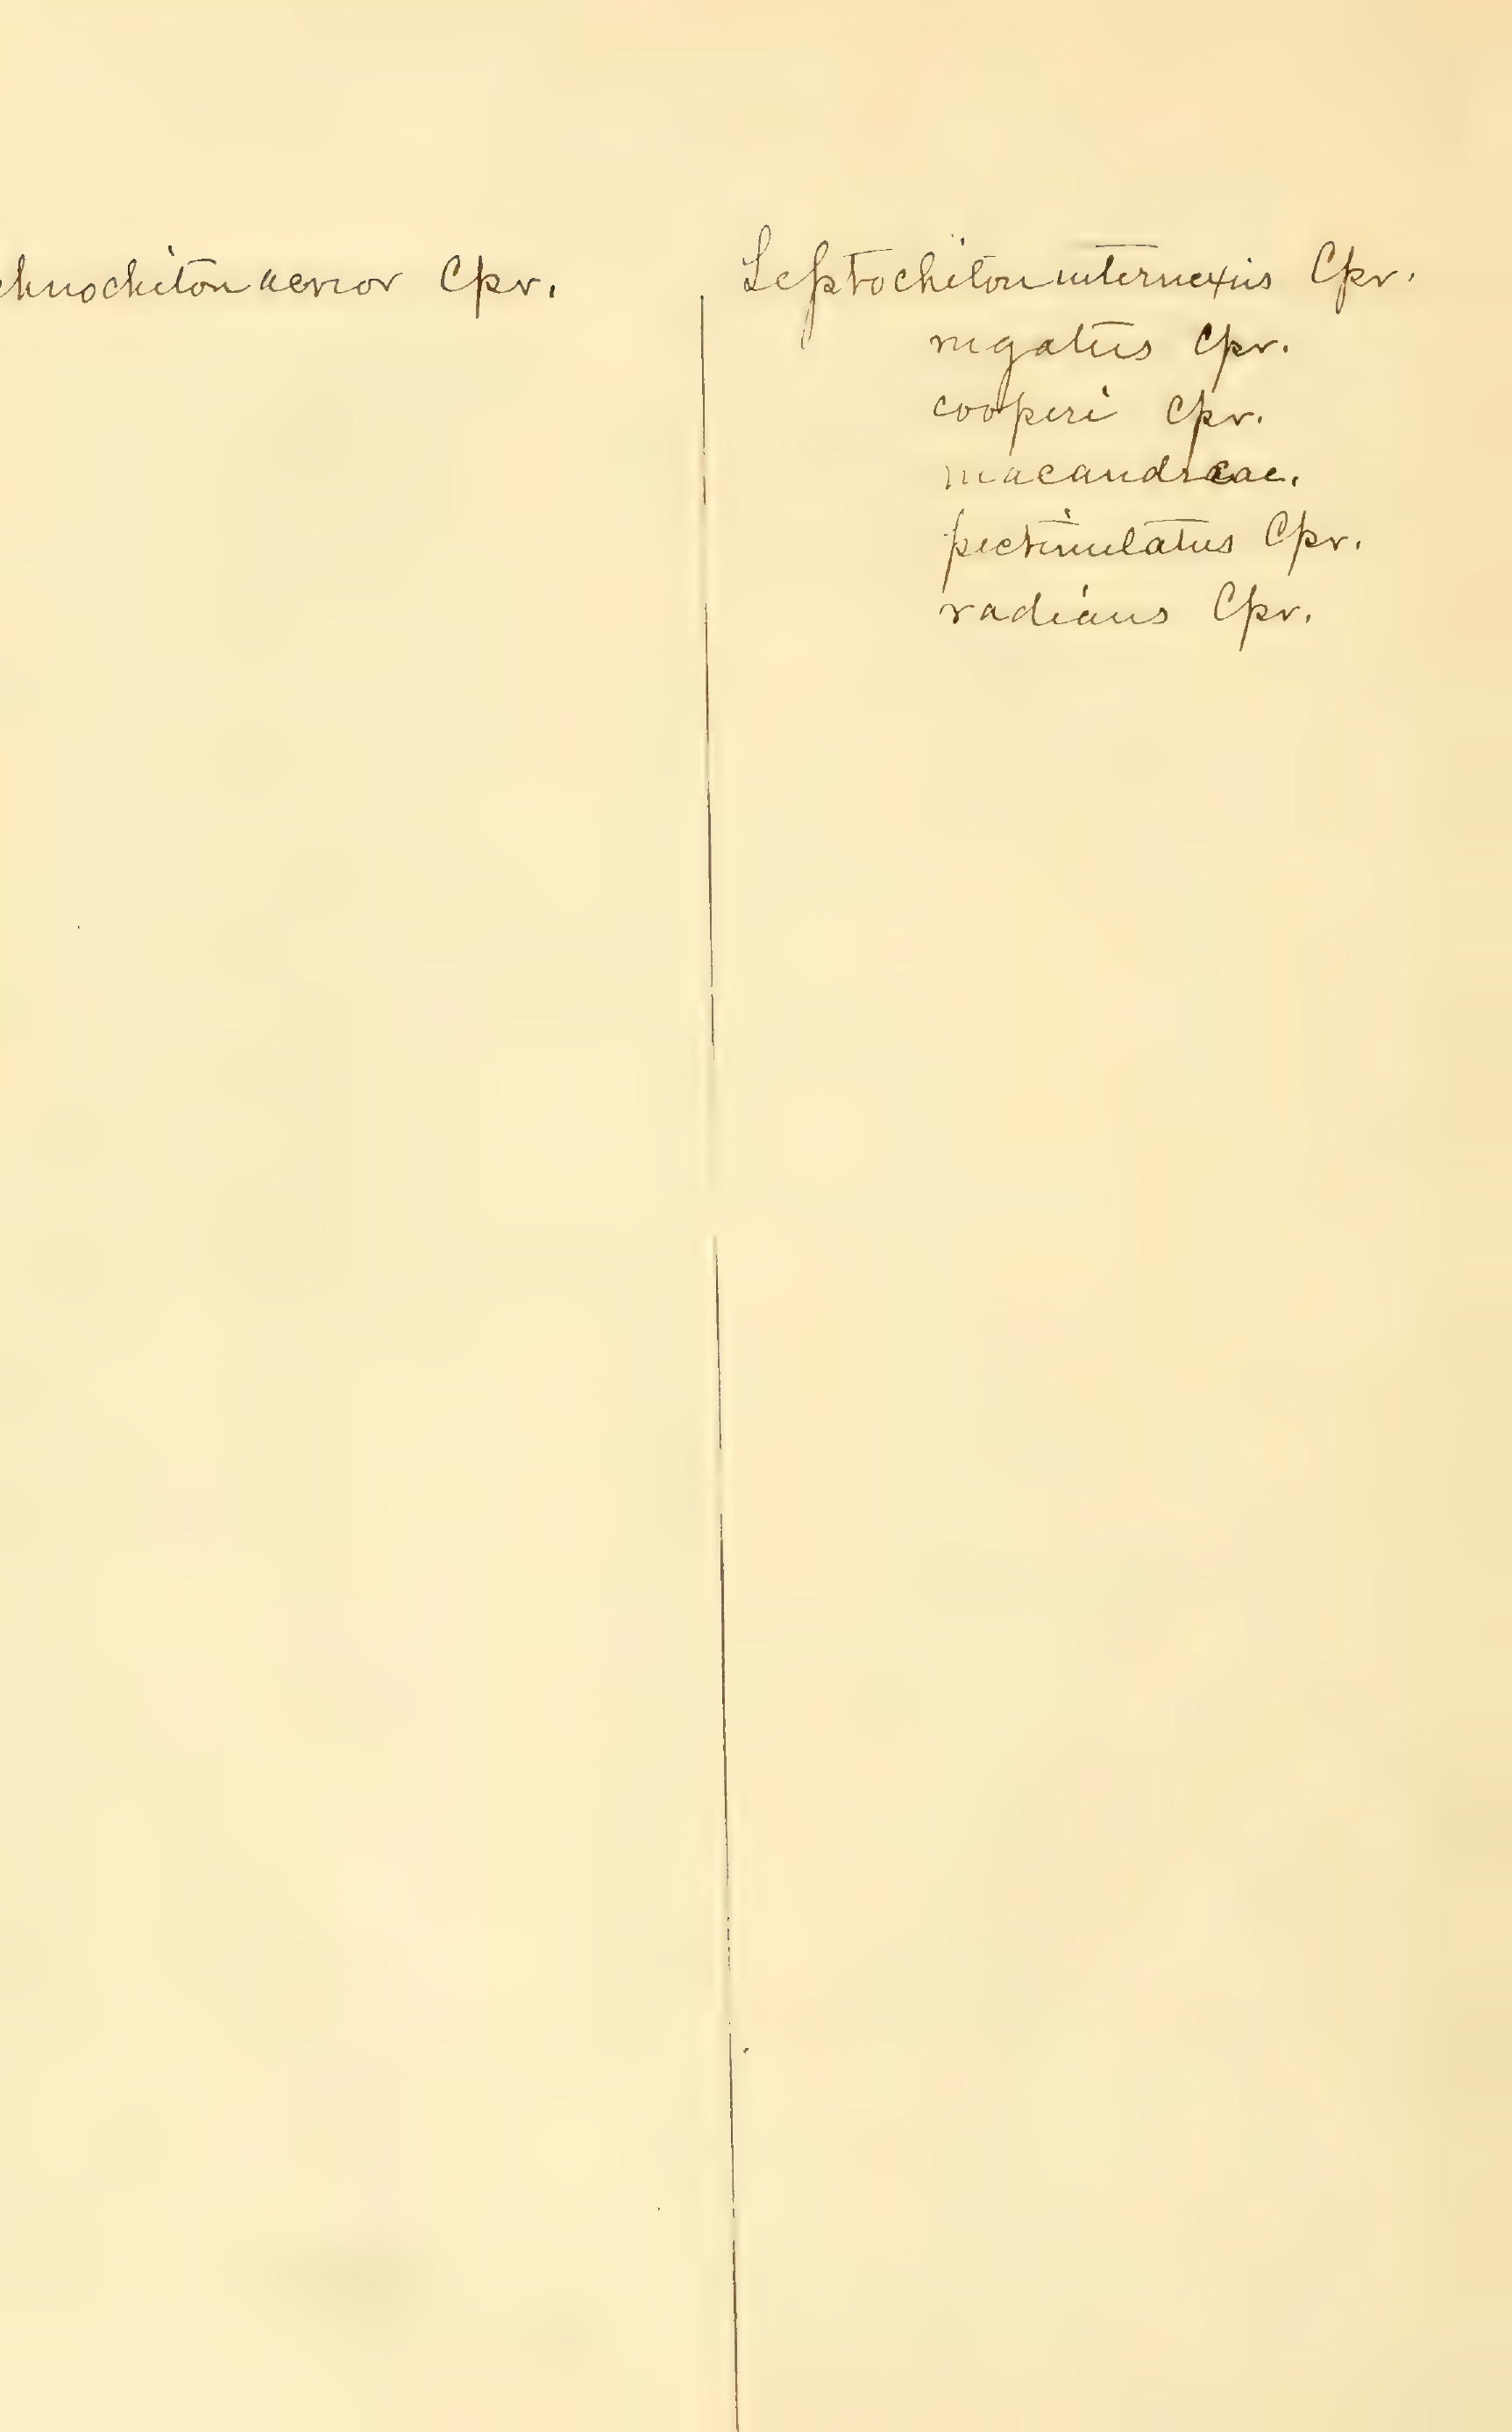 chnochiton acrior Cpr.
Leptochiton internexus Cpr.
rugatus Cpr.
cooperi Cpr.
macandreae.
pectinulatus Cpr.
radians Cpr.